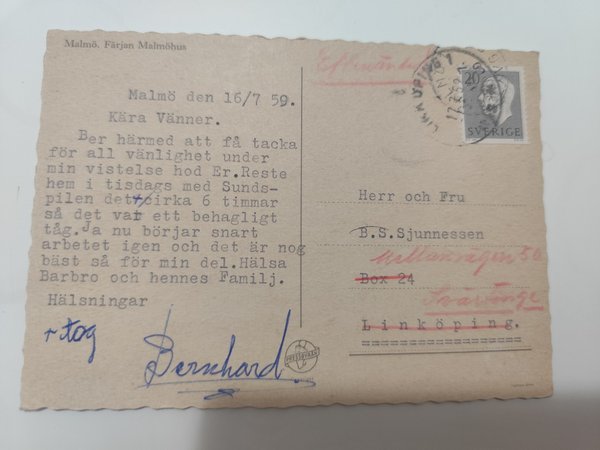 Malmö. Färjan Malmöhus
Malmö den 16/7 59.
Kära Vänner.
Ber härmed att få tacka
för all vänlighet under
min vistelse hod Er.Reste
hem i tisdags med Sunds-
pilen det+cirka 6 timmar
så det var ett behagligt
tåg.Ja nu börjar snart
arbetet igen och det är nog
bäst så för min del.Hälsa
Barbro och hennes Familj.
Hälsningar
+ tog
Bernhard
PRESSBYRÅN
LINKÖPING 1
20
SVERIGE
Herr och Fru
B.S.Sjunnessen
Box 24
Linköping.